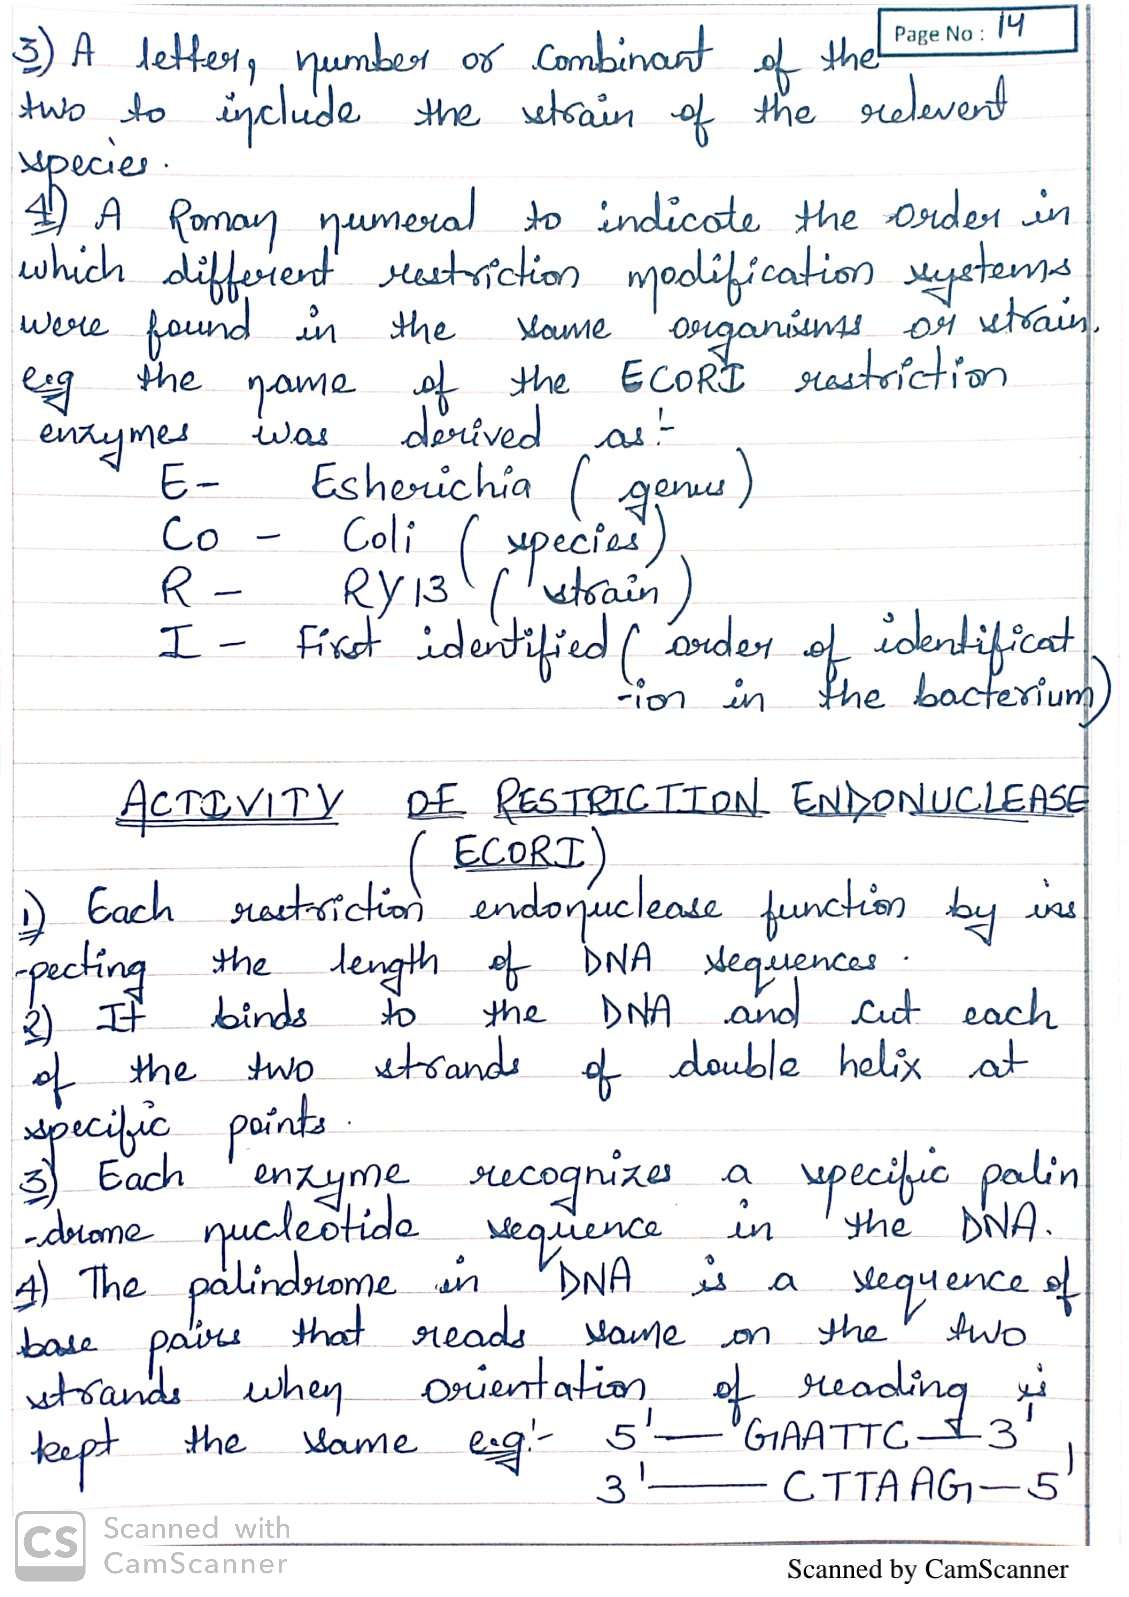 Page No : 14
3) A letter, number or combinant of the
two to include the strain of the relevent
species.
4) A Roman numeral to indicate the order in
which different restriction modification systems
were found in the same organisms or strain.
e.g the name of the ECORI restriction
enzymes was derived as:-
E- Esherichia ( genus)
Co - Coli ( species)
R - RY13 ( strain)
I - First identified ( order of identificat
-ion in the bacterium)
ACTIVITY OF RESTRICTION ENDONUCLEASE
( ECORI)
1) Each restriction endonuclease function by ins
-pecting the length of DNA sequences.
2) It binds to the DNA and cut each
of the two strands of double helix at
specific points.
3) Each enzyme recognizes a specific palin
-drome nucleotide sequence in the DNA.
4) The palindrome in DNA is a sequence of
base pairs that reads same on the two
strands when orientation of reading is
kept the same e.g:- 5'— GAATTC — 3'
3'— CTTAAG — 5'
CS Scanned with
CamScanner
Scanned by CamScanner